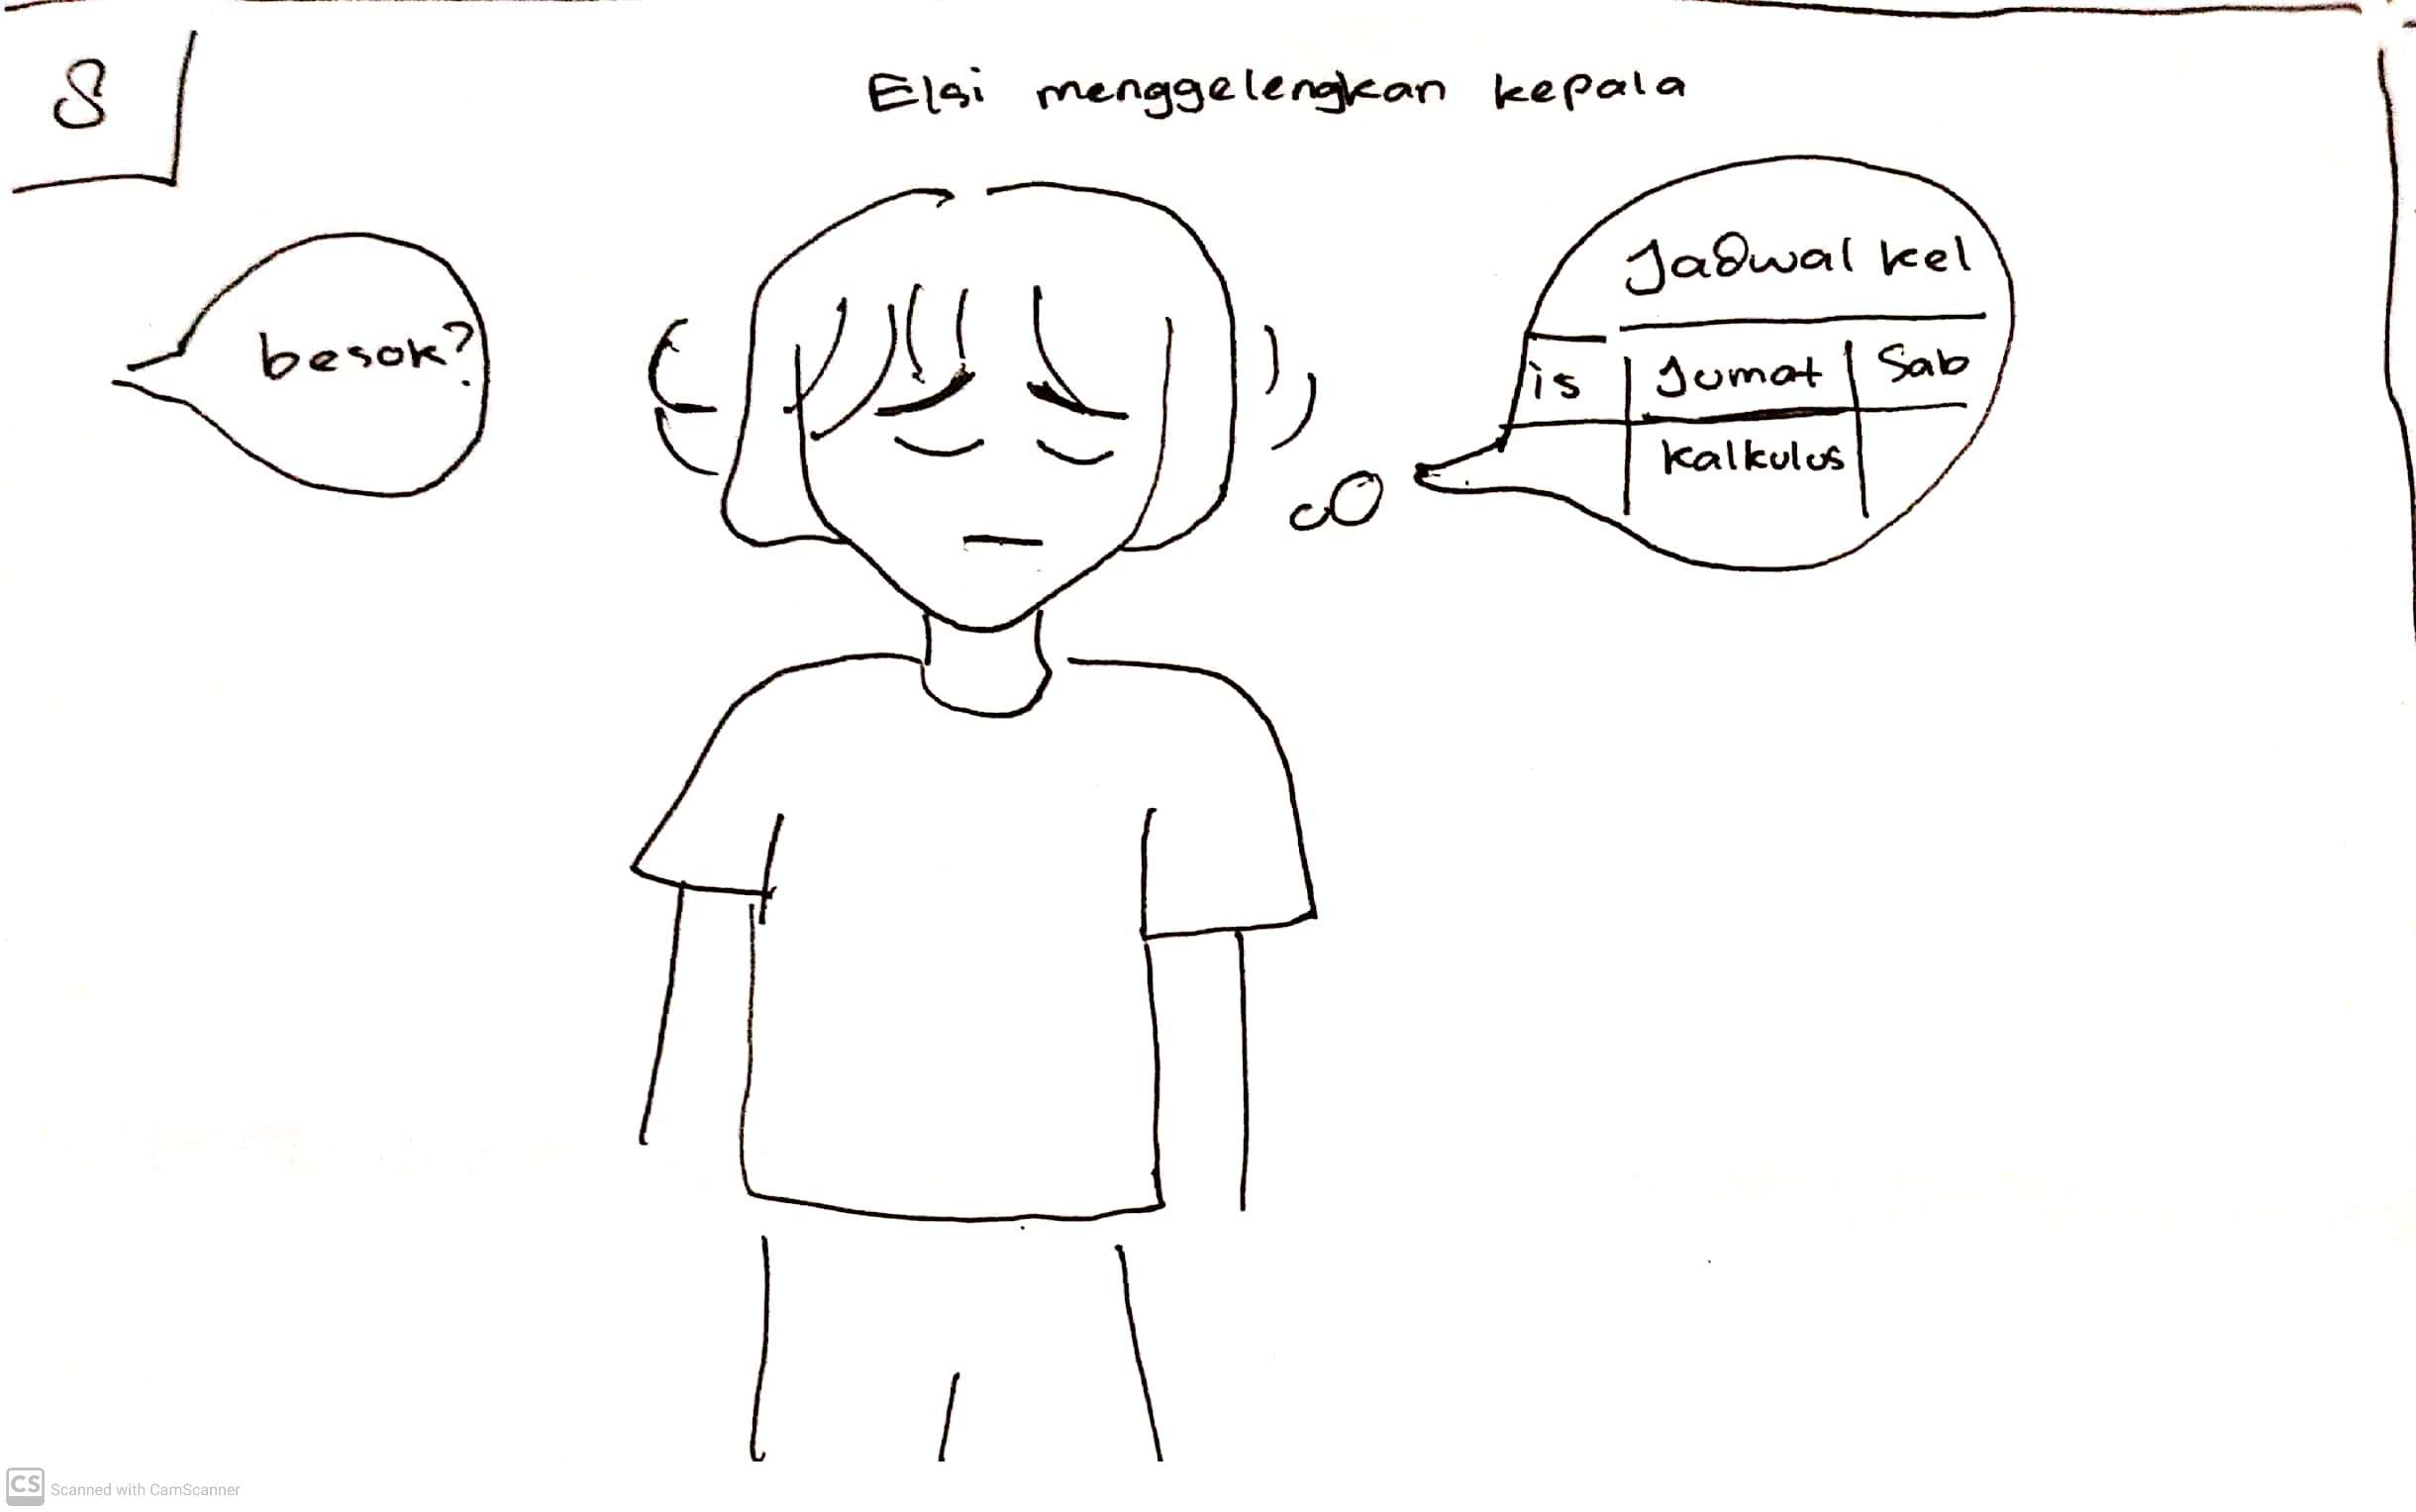 8
Elsi menggelengkan kepala
besok?
Jadwal kel
is Jumat Sab
kalkulus
CS Scanned with CamScanner